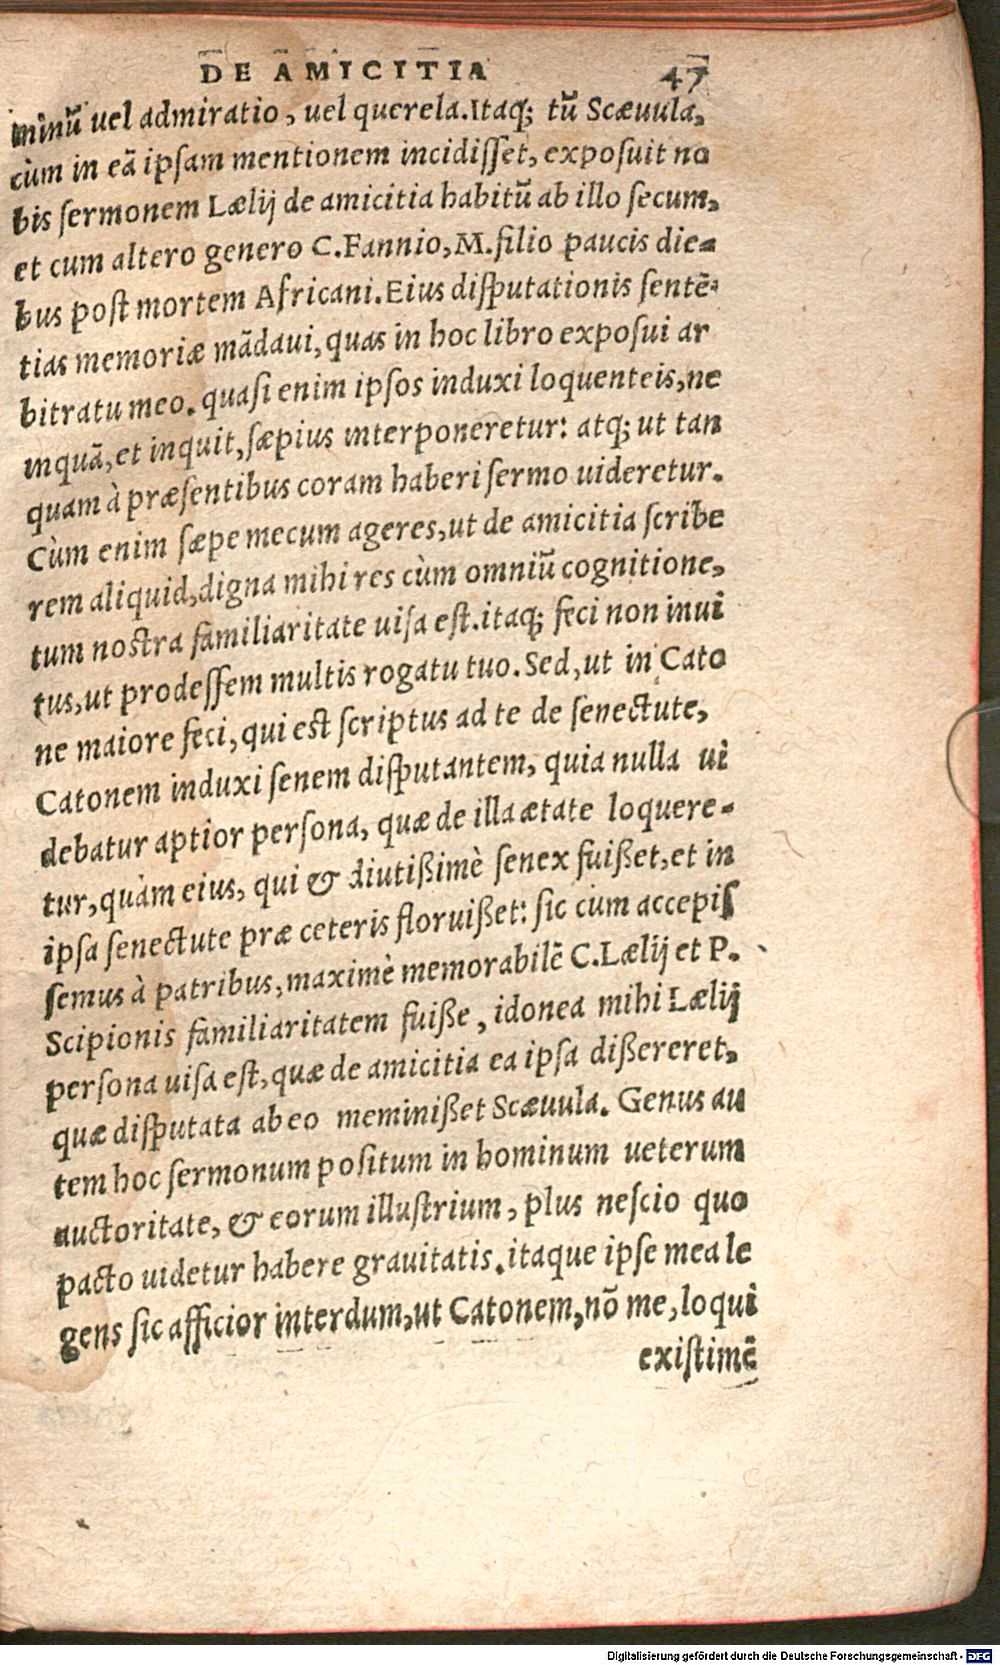 DE AMICITIA 47
minũ uel admiratio, uel querela. Itaq; tũ Scæuula,
cùm in eã ipsam mentionem incidisset, exposuit no
bis sermonem Lælij de amicitia habitũ ab illo secum,
et cum altero genero C. Fannio, M. filio paucis die-
bus post mortem Africani. Eius disputationis sentẽ-
tias memoriæ mãdaui, quas in hoc libro exposui ar
bitratu meo. quasi enim ipsos induxi loquenteis, ne
inquã, et inquit, sæpius interponeretur: atq; ut tan
quam à præsentibus coram haberi sermo uideretur.
Cùm enim sæpe mecum ageres, ut de amicitia scribe
rem aliquid, digna mihi res cùm omniũ cognitione,
tum nostra familiaritate uisa est. itaq; feci non inui
tus, ut prodessem multis rogatu tuo. Sed, ut in Cato
ne maiore feci, qui est scriptus ad te de senectute,
Catonem induxi senem disputantem, quia nulla ui
debatur aptior persona, quæ de illa ætate loquere-
tur, quàm eius, qui & diutißimè senex fuißet, et in
ipsa senectute præ ceteris floruißet: sic cùm accepis
semus à patribus, maximè memorabilẽ C. Lælij et P.
Scipionis familiaritatem fuiße, idonea mihi Lælij
persona uisa est, quæ de amicitia ea ipsa dißereret,
quæ disputata ab eo meminißet Scæuula. Genus au
tem hoc sermonum positum in hominum ueterum
auctoritate, & eorum illustrium, plus nescio quo
pacto uidetur habere grauitatis. itaque ipse mea le
gens sic afficior interdum, ut Catonem, nõ me, loqui
existimẽ
Digitalisierung gefördert durch die Deutsche Forschungsgemeinschaft - DFG